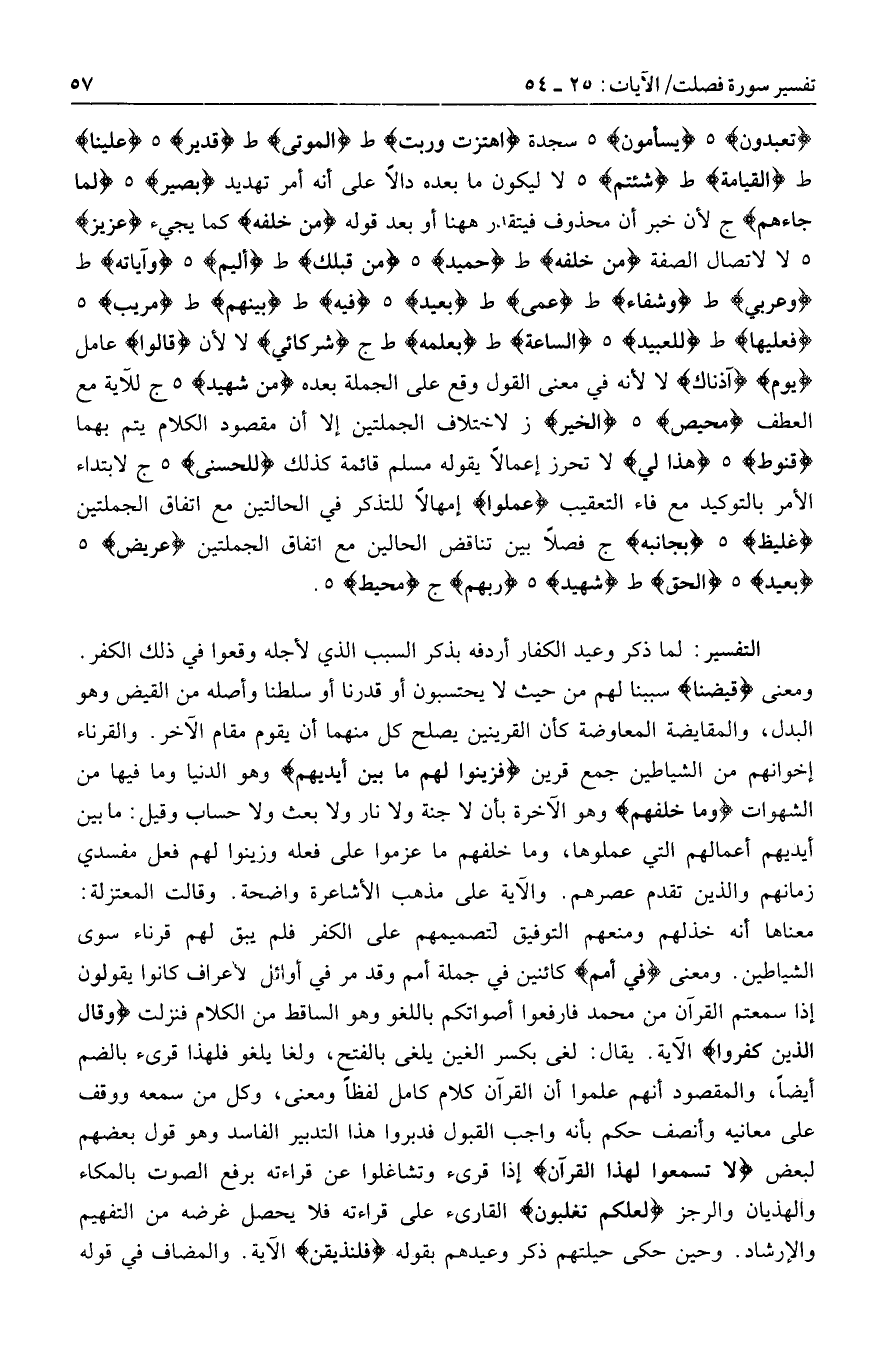 تفسير سورة فصلت/ الآيات: ٢٥ - ٥٤ ٥٧
﴿تعبدون﴾ ٥ ﴿يسأمون﴾ ٥ سجدة ﴿اهتزت وربت﴾ ط ﴿الموتى﴾ ط ﴿قدير﴾ ٥ ﴿علينا﴾
ط ﴿القيامة﴾ ط ﴿شئتم﴾ ٥ لا ليكون ما بعده دالاً على أنه أمر تهديد ﴿بصير﴾ ٥ ﴿لما
جاءهم﴾ ج لأن خبر أن محذوف فيتقدر ههنا أو بعد قوله ﴿من خلفه﴾ كما يجيء ﴿عزيز﴾
٥ لا لاتصال الصفة ﴿من خلفه﴾ ط ﴿حميد﴾ ٥ ﴿من قبلك﴾ ط ﴿أليم﴾ ٥ ﴿وآياته﴾ ط
﴿وعربي﴾ ط ﴿وشفاء﴾ ط ﴿عمى﴾ ط ﴿بعيد﴾ ٥ ﴿فيه﴾ ط ﴿بينهم﴾ ط ﴿مريب﴾ ٥
﴿فعليها﴾ ط ﴿للعبيد﴾ ٥ ﴿الساعة﴾ ط ﴿بعلمه﴾ ط ج ﴿شركائي﴾ لا لأن ﴿قالوا﴾ عامل
﴿يوم﴾ ﴿آذناك﴾ لا لأنه في معنى القول وقع على الجملة بعده ﴿من شهيد﴾ ٥ ج للآية مع
العطف ﴿محيص﴾ ٥ ﴿الخير﴾ ز لاختلاف الجملتين إلا أن مقصود الكلام يتم بهما
﴿قنوط﴾ ٥ ﴿هذا لي﴾ لا تحرز إعمالاً يقوله مسلم قائمة كذلك ﴿للحسنى﴾ ٥ ج لابتداء
الأمر بالتوكيد مع فاء التعقيب ﴿عملوا﴾ إمهالاً للتذكر في الحالتين مع اتفاق الجملتين
﴿غليظ﴾ ٥ ﴿بجانبه﴾ ج فصلاً بين تناقض الحالين مع اتفاق الجملتين ﴿عريض﴾ ٥
﴿بعيد﴾ ٥ ﴿الحق﴾ ط ﴿شهيد﴾ ٥ ﴿ربهم﴾ ج ﴿محيط﴾ ٥.
التفسير: لما ذكر وعيد الكفار أردفه بذكر السبب الذي لأجله وقعوا في ذلك الكفر.
ومعنى ﴿قيضنا﴾ سببنا لهم من حيث لا يحتسبون أو قدرنا أو سلطنا وأصله من القيض وهو
البدل، والمقايضة المعاوضة كأن القرينين يصلح كل منهما أن يقوم مقام الآخر. والقرناء
إخوانهم من الشياطين جمع قرين ﴿فزينوا لهم ما بين أيديهم﴾ وهو الدنيا وما فيها من
الشهوات ﴿وما خلفهم﴾ وهو الآخرة بأن لا جنة ولا نار ولا بعث ولا حساب وقيل: ما بين
أيديهم أعمالهم التي عملوها، وما خلفهم ما عزموا على فعله وزينوا لهم فعل مفسدي
زمانهم والذين تقدم عصرهم. والآية على مذهب الأشاعرة واضحة. وقالت المعتزلة:
معناها أنه خذلهم ومنعهم التوفيق لتصميمهم على الكفر فلم يبق لهم قرناء سوى
الشياطين. ومعنى ﴿في أمم﴾ كائنين في جملة أمم وقد مر في أوائل لأعراف كانوا يقولون
إذا سمعتم القرآن من محمد فارفعوا أصواتكم باللغو وهو الساقط من الكلام فنزلت ﴿وقال
الذين كفروا﴾ الآية. يقال: لغى بكسر الغين يلغى بالفتح، ولغا يلغو فلهذا قرىء بالضم
أيضاً، والمقصود أنهم علموا أن القرآن كلام كامل لفظاً ومعنى، وكل من سمعه ووقف
على معانيه وأنصف حكم بأنه واجب القبول فدبروا هذا التدبير الفاسد وهو قول بعضهم
لبعض ﴿لا تسمعوا لهذا القرآن﴾ إذا قرىء وتشاغلوا عن قراءته برفع الصوت بالمكاء
والهذيان والرجز ﴿لعلكم تغلبون﴾ القارىء على قراءته فلا يحصل غرضه من التفهيم
والإرشاد. وحين حكى حيلتهم ذكر وعيدهم بقوله ﴿فلنذيقن﴾ الآية. والمضاف في قوله